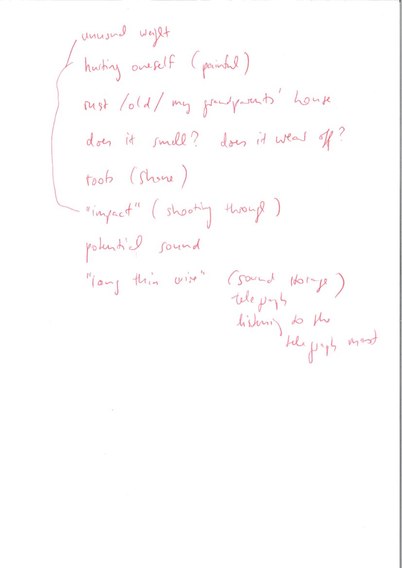 unusual weight
hurting oneself (painful)
rust / old / my grandparents' house
does it smell? does it wear off?
tools (stone)
"impact" (shooting through)
potential sound
"long thin wire" (sound storage)
telegraph
listening to the
telegraph mast